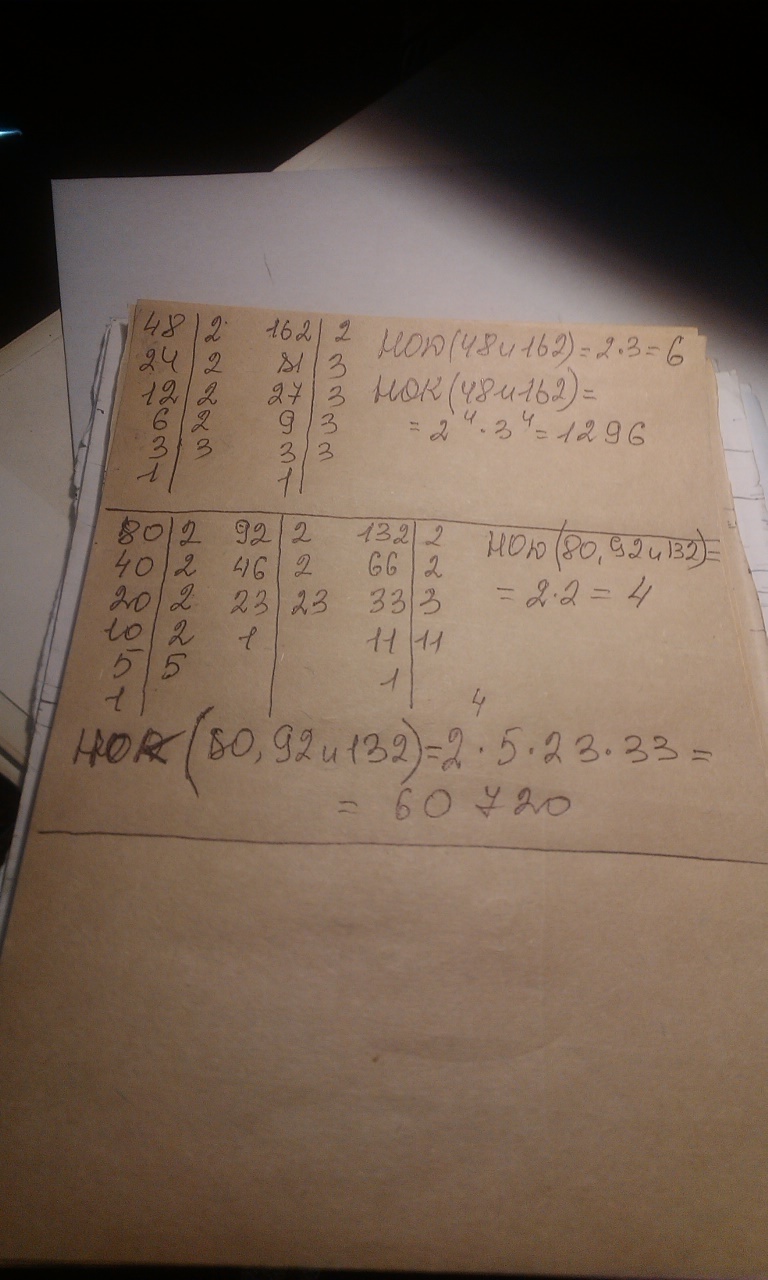 48 | 2 162 | 2 НОД(48 и 162) = 2·3 = 6
24 | 2 81 | 3
12 | 2 27 | 3 НОК(48 и 162) =
6 | 2 9 | 3 = 2⁴·3⁴ = 1296
3 | 3 3 | 3
1 | 1 |
80 | 2 92 | 2 132 | 2 НОД(80, 92 и 132) =
40 | 2 46 | 2 66 | 2
20 | 2 23 | 23 33 | 3 = 2·2 = 4
10 | 2 1 | 11 | 11
5 | 5 1 |
1 |
НОК (80, 92 и 132) = 2⁴·5·23·33 =
= 60 720